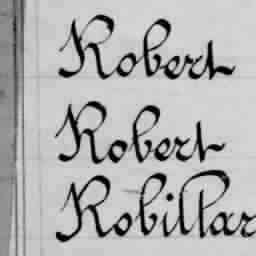 Robert
Robert
Robillar